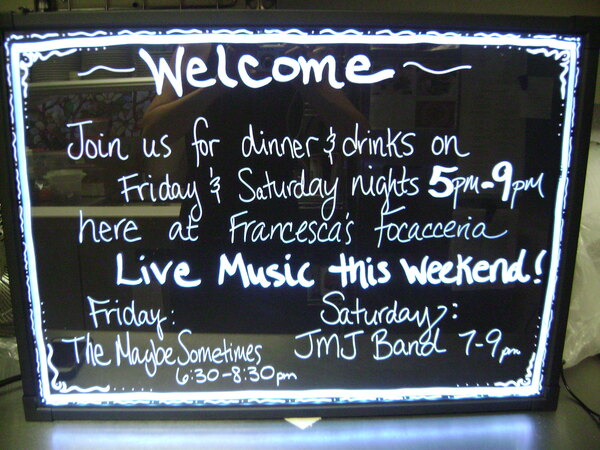 Welcome
Join us for dinner & drinks on
Friday & Saturday nights 5pm-9pm
here at Francesca's focacceria
Live Music this Weekend!
Friday: Saturday:
The MaybeSometimes JMJ Band 7-9pm
6:30-8:30pm